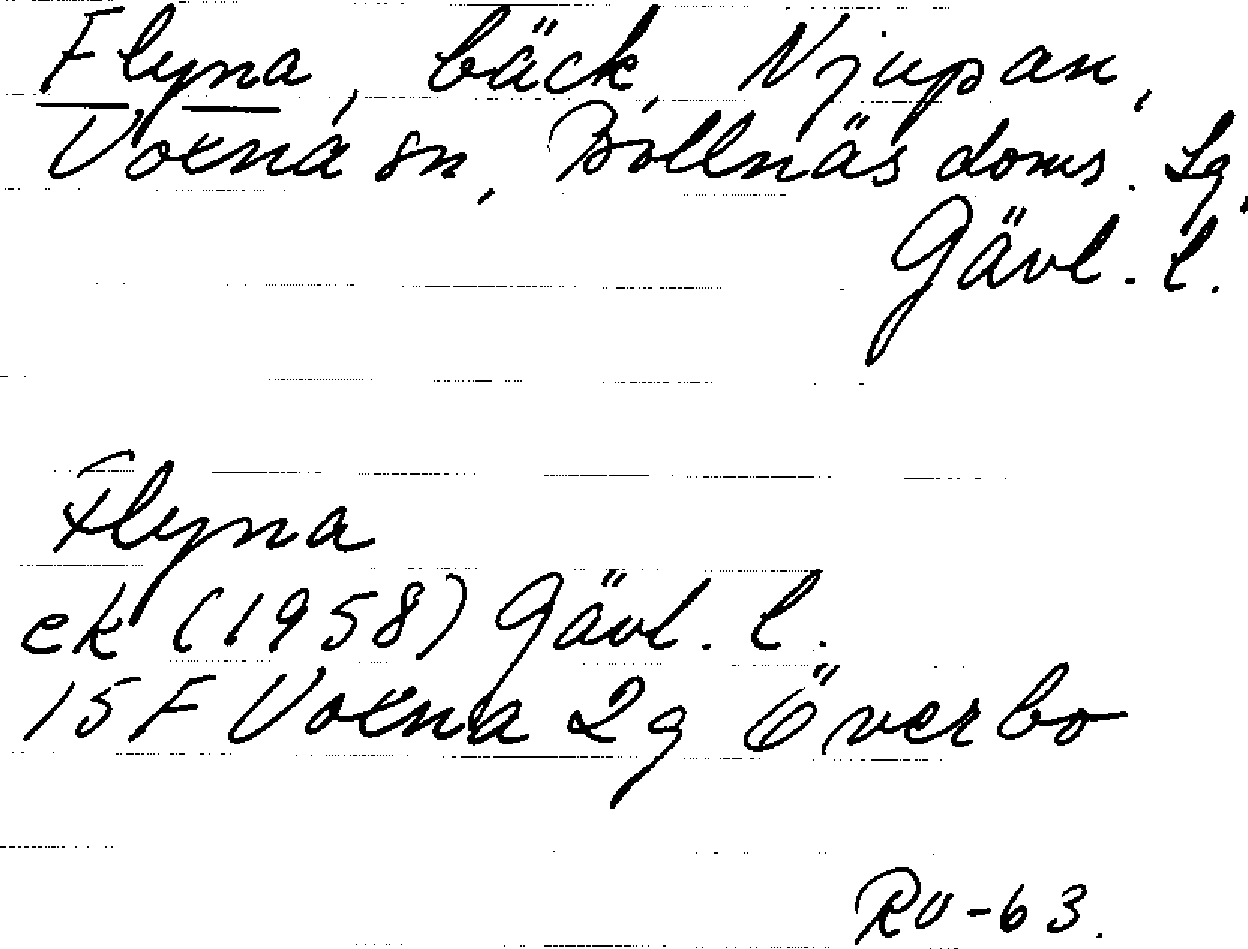 Flyna, bäck, Njupan,
Voxna sn, Bollnäs doms. Lg,
Gävl. l.
Flyna
ek (1958) Gävl. l.
15F Voxna 2g Överbo
RU-63.